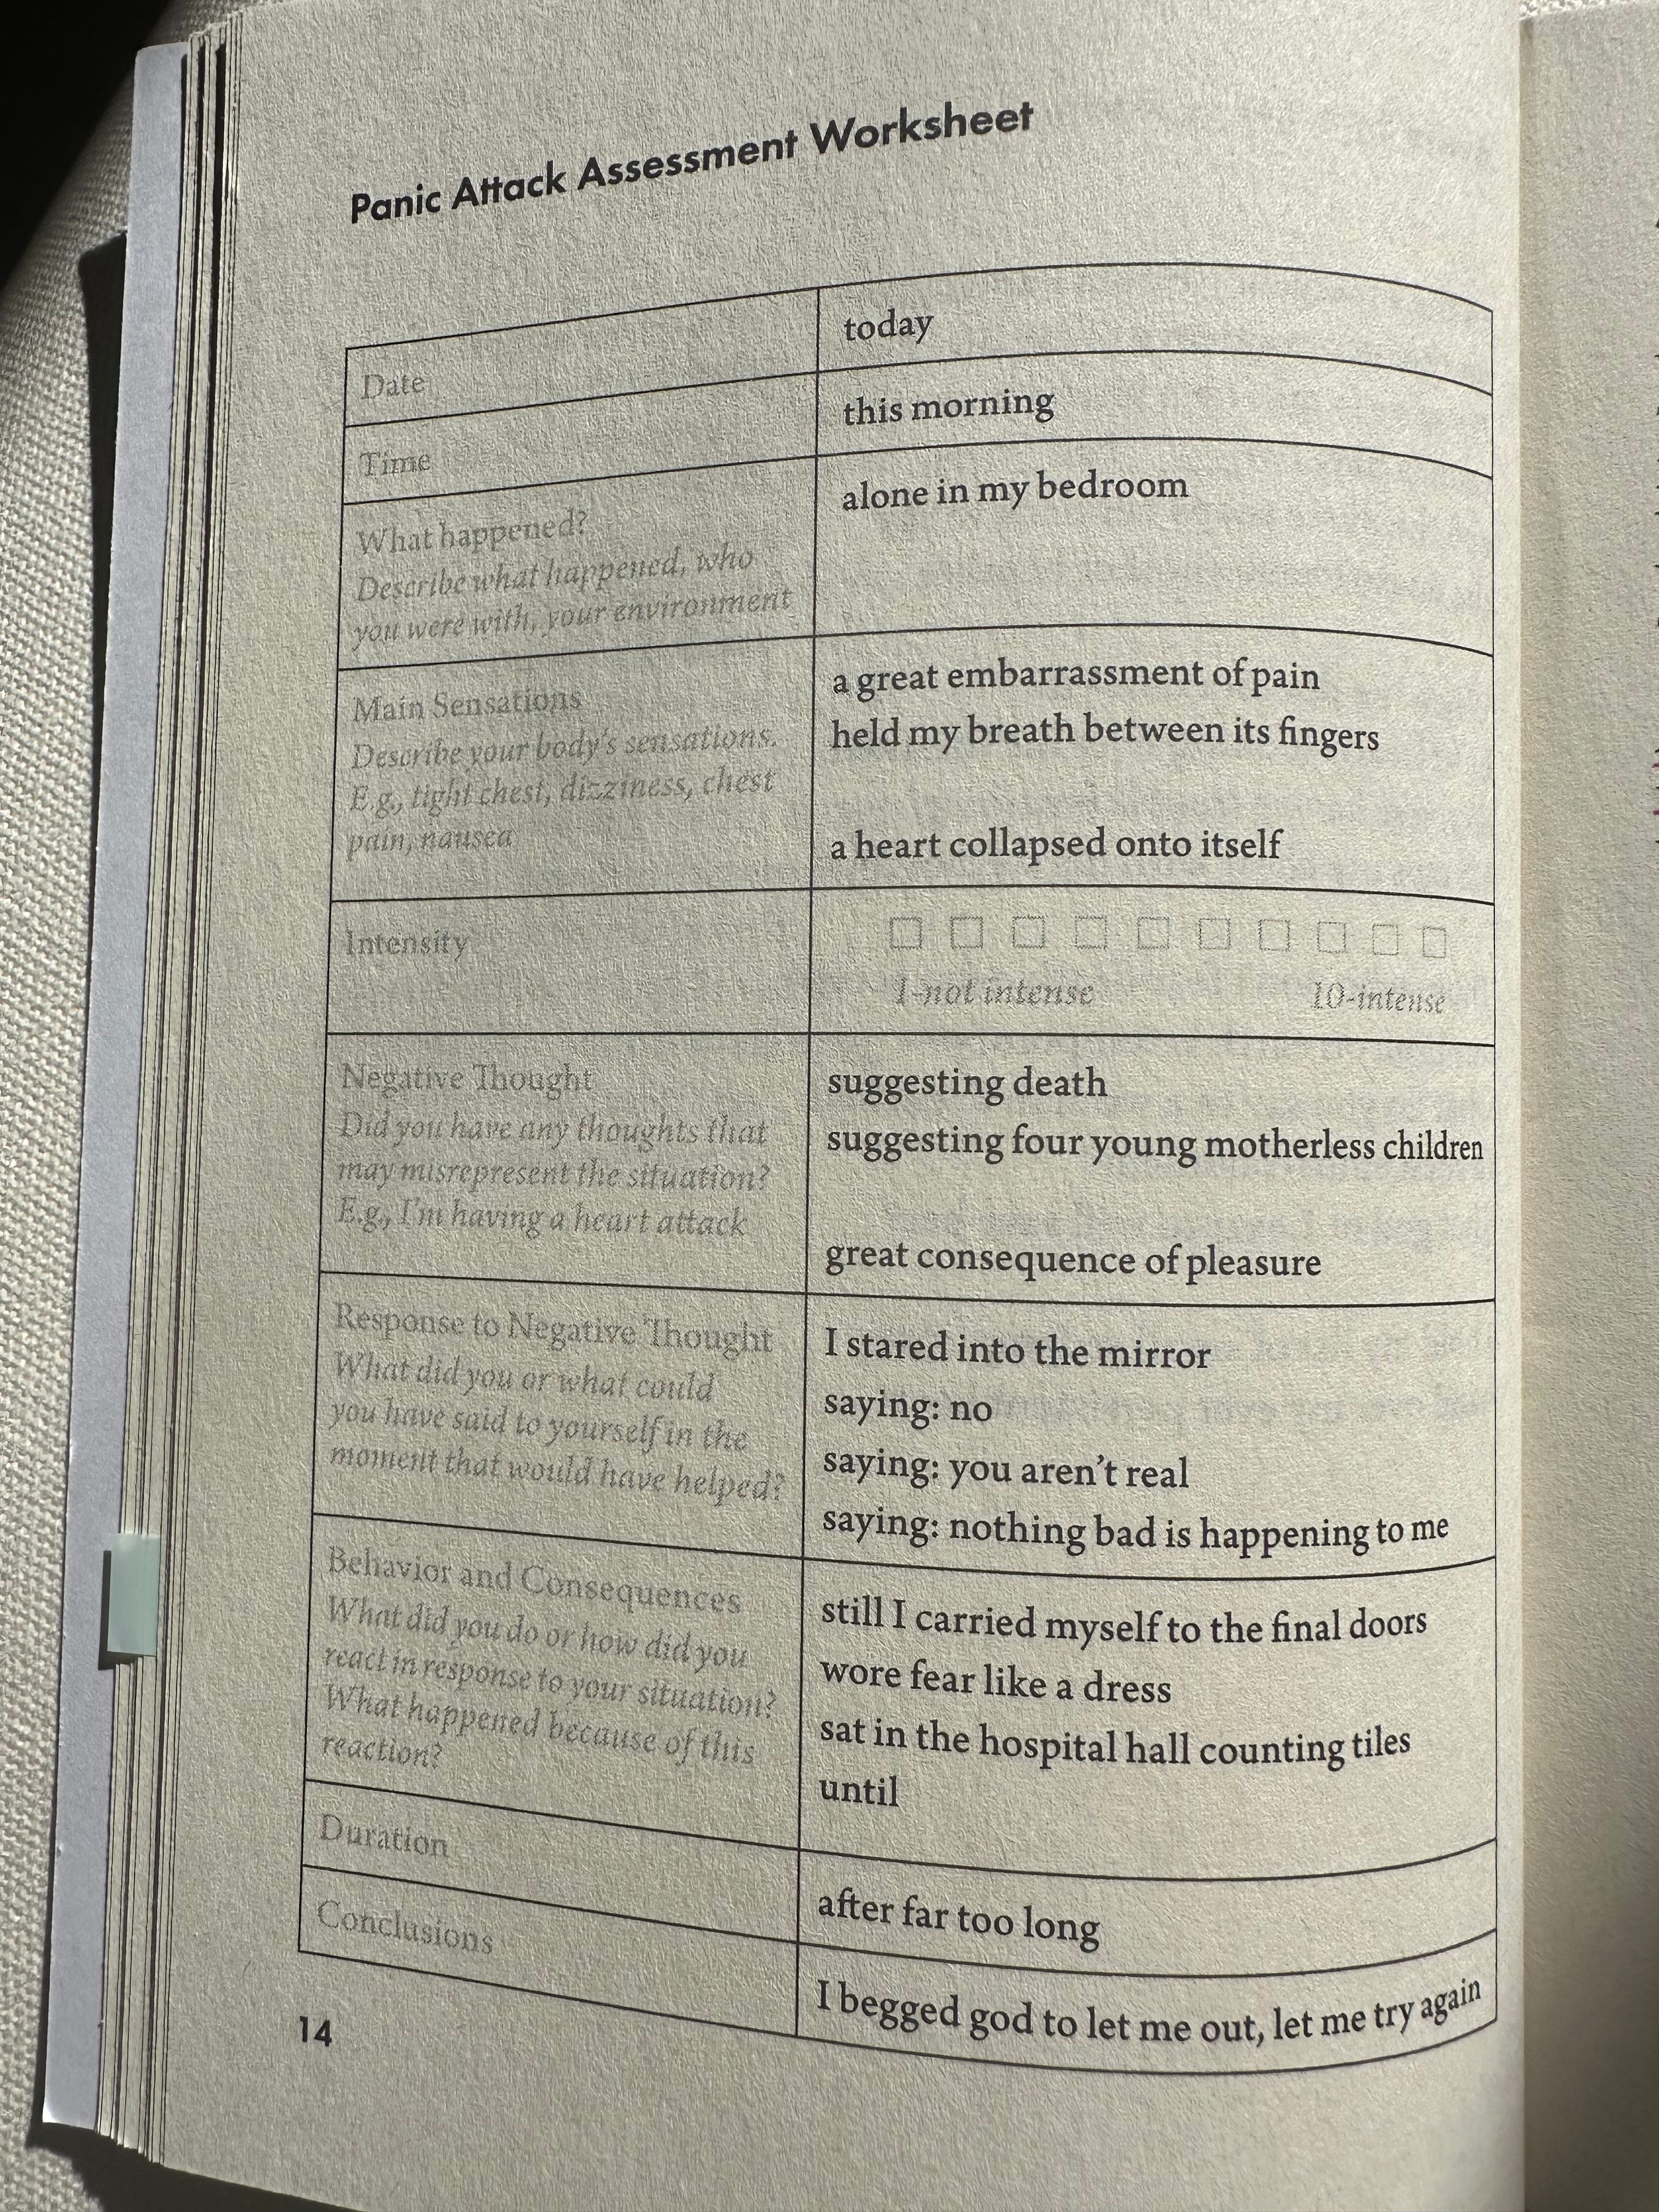 Panic Attack Assessment Worksheet
Date
today
Time
this morning
What happened?
Describe what happened, who
you were with, your environment
alone in my bedroom
Main Sensations
Describe your body's sensations.
E.g., tight chest, dizziness, chest
pain, nausea
a great embarrassment of pain
held my breath between its fingers
a heart collapsed onto itself
Intensity
1-not intense
10-intense
Negative Thought
Did you have any thoughts that
may misrepresent the situation?
E.g., I'm having a heart attack
suggesting death
suggesting four young motherless children
great consequence of pleasure
Response to Negative Thought
What did you or what could
you have said to yourself in the
moment that would have helped?
I stared into the mirror
saying: no
saying: you aren't real
saying: nothing bad is happening to me
Behavior and Consequences
What did you do or how did you
react in response to your situation?
What happened because of this
reaction?
still I carried myself to the final doors
wore fear like a dress
sat in the hospital hall counting tiles
until
Duration
after far too long
Conclusions
I begged god to let me out, let me try again
14